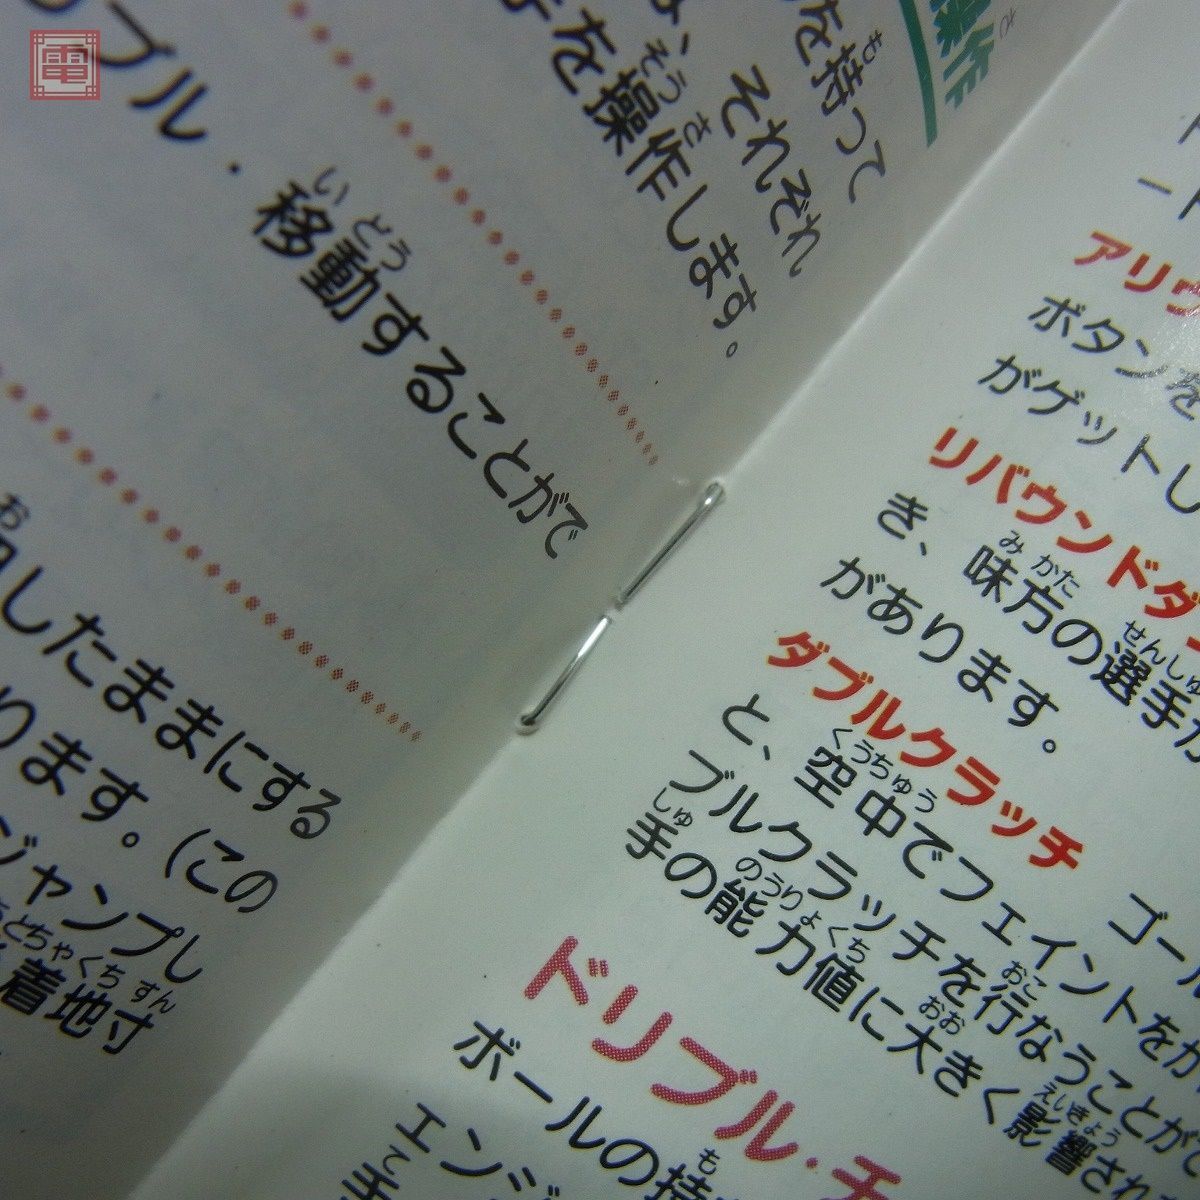 電
操作
を持って
それぞれ
を操作します。
ブル・移動することがで
したままにする
ります。(この
ジャンプし
着地寸
アリウ
ボタンを
がゲットし
リバウンドダ
き、味方の選手が
があります。
ダブルクラッチ
ゴール
と、空中でフェイントをか
ブルクラッチを行なうことがで
手の能力値に大きく影響され
ドリブル・チ
ボールの持
エンジ